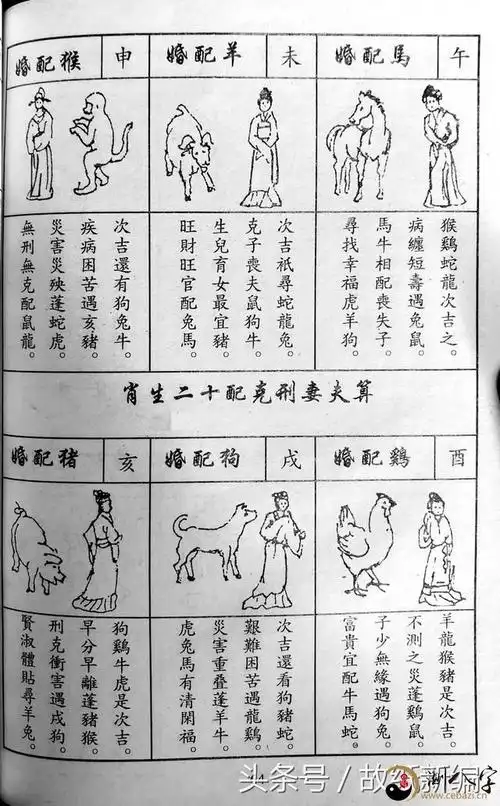 婚配猴 申
無刑無克配鼠龍。
災害災殃蓬蛇虎。
疾病困苦遇亥豬。
次吉還有狗兔牛。
婚配羊 未
旺財旺官配兔馬。
生兒育女最宜豬。
克子喪夫鼠狗牛。
次吉祇尋蛇龍兔。
婚配馬 午
尋找幸福虎羊狗。
馬牛相配喪失子。
病纏短壽遇兔鼠。
猴鷄蛇龍次吉之。
算夫妻刑克配十二生肖
婚配猪 亥
賢淑體貼尋羊兔。
刑克衝害遇戌狗。
早分早離蓬豬猴。
狗鷄牛虎是次吉。
婚配狗 戌
虎兔馬有清閑福。
災害重叠蓬羊牛。
艱難困苦遇龍鷄。
次吉還看狗豬蛇。
婚配鷄 酉
富貴宜配牛馬蛇。
子少無緣遇狗兔。
不測之災蓬鷄鼠。
羊龍猴豬是次吉。
头条号/故
www.cebazi.cn